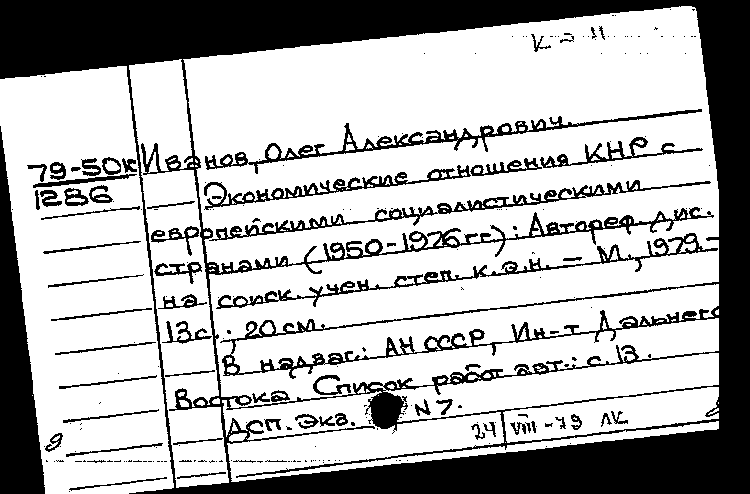 К-11
79-50к Иванов, Олег Александрович.
1286 Экономические отношения КНР с
европейскими социалистическими
странами (1950-1976 гг.): Автореф. дис.
на соиск. учен. степ. к.э.н. — М., 1979.-
13с.; 20см.
В надзаг.: АН СССР, Ин-т Дальнего
Востока. Список работ авт.: с.13.
ДСП. Экз. N 7.
24/VIII-79 ЛК